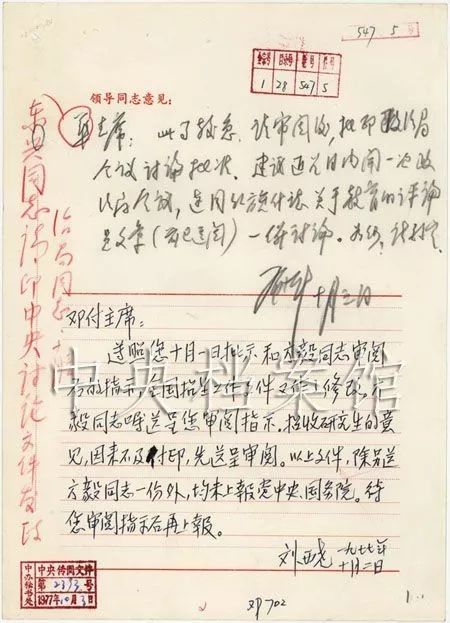 547 5号
全宗号 目录号 卷号 件号
1 28 547 5
领导同志意见：
华主席：此事较急，请审阅后，批印政治局
会议讨论批准。建议近几日内开一次政
治局会议，连同 关于教育的评论
员文章（前已送阅）一併讨论。
十月三日
东兴同志：请印中央讨论文件发政
治局同志
邓付主席：
遵照您十月一日批示和方毅同志审阅
后的指示，全国招生工作文件又作了修改，方
毅同志嘱送呈您审阅指示。招收研究生的意
见，因来不及付印，先送呈审阅。以上文件，除另送
方毅同志一份外，均未上报党中央、国务院。待
您审阅指示后再上报。
刘西尧 一九七七年
十月二日
中央档案馆
中办秘书处
中央传阅文件
第2393号
1977年10月3日
邓702